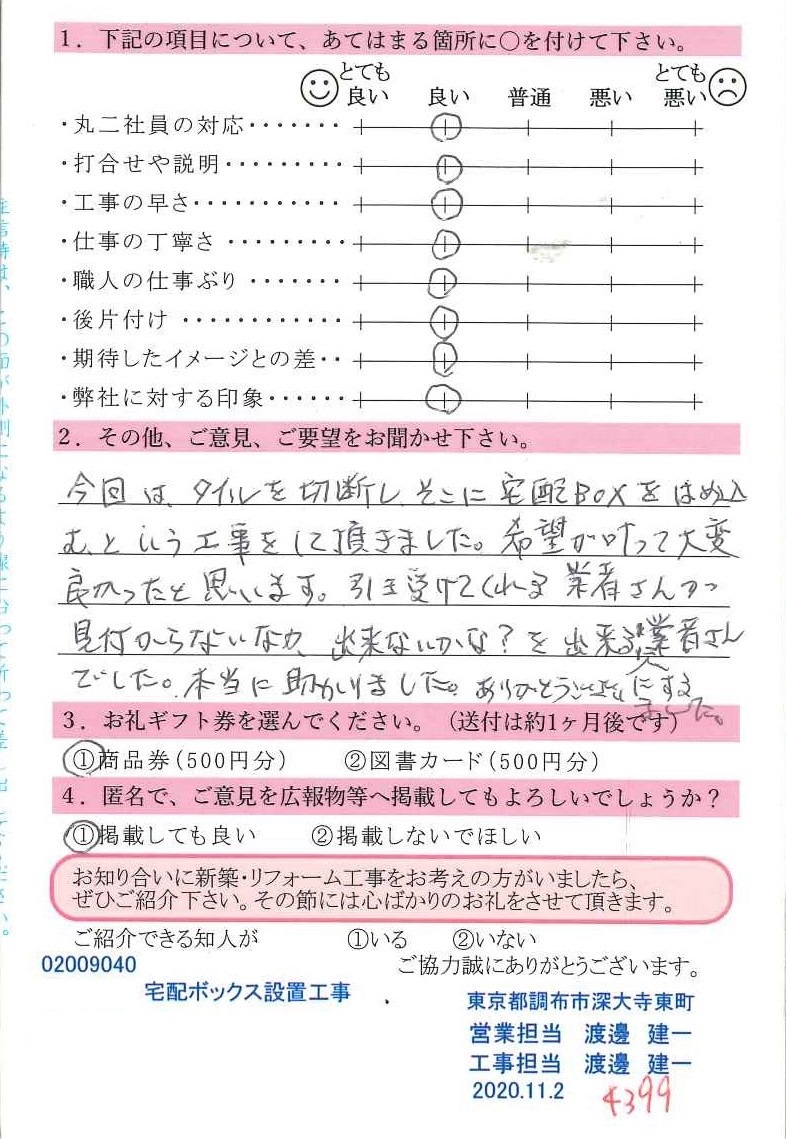 1．下記の項目について、あてはまる箇所に○を付けて下さい。
とても良い 良い 普通 悪い とても悪い
・丸二社員の対応・・・・・・・
・打合せや説明・・・・・・・・・
・工事の早さ・・・・・・・・・・・
・仕事の丁寧さ・・・・・・・・・
・職人の仕事ぶり・・・・・・・
・後片付け・・・・・・・・・・・・
・期待したイメージとの差・・
・弊社に対する印象・・・・・・
2．その他、ご意見、ご要望をお聞かせ下さい。
今回は、タイルを切断し、そこに宅配BOXをはめ込
む、という工事をして頂きました。希望が叶って大変
良かったと思います。引き受けてくれる業者さんが
見付からないなか、出来ないかな？を出来る業者さん
でした。本当に助かりました。ありがとうございました。
3．お礼ギフト券を選んでください。（送付は約1ヶ月後です）
①商品券（500円分） ②図書カード（500円分）
4．匿名で、ご意見を広報物等へ掲載してもよろしいでしょうか？
①掲載しても良い ②掲載しないでほしい
お知り合いに新築・リフォーム工事をお考えの方がいましたら、
ぜひご紹介下さい。その節には心ばかりのお礼をさせて頂きます。
ご紹介できる知人が ①いる ②いない
02009040 ご協力誠にありがとうございます。
宅配ボックス設置工事
東京都調布市深大寺東町
営業担当 渡邊 建一
工事担当 渡邊 建一
2020.11.2
4399